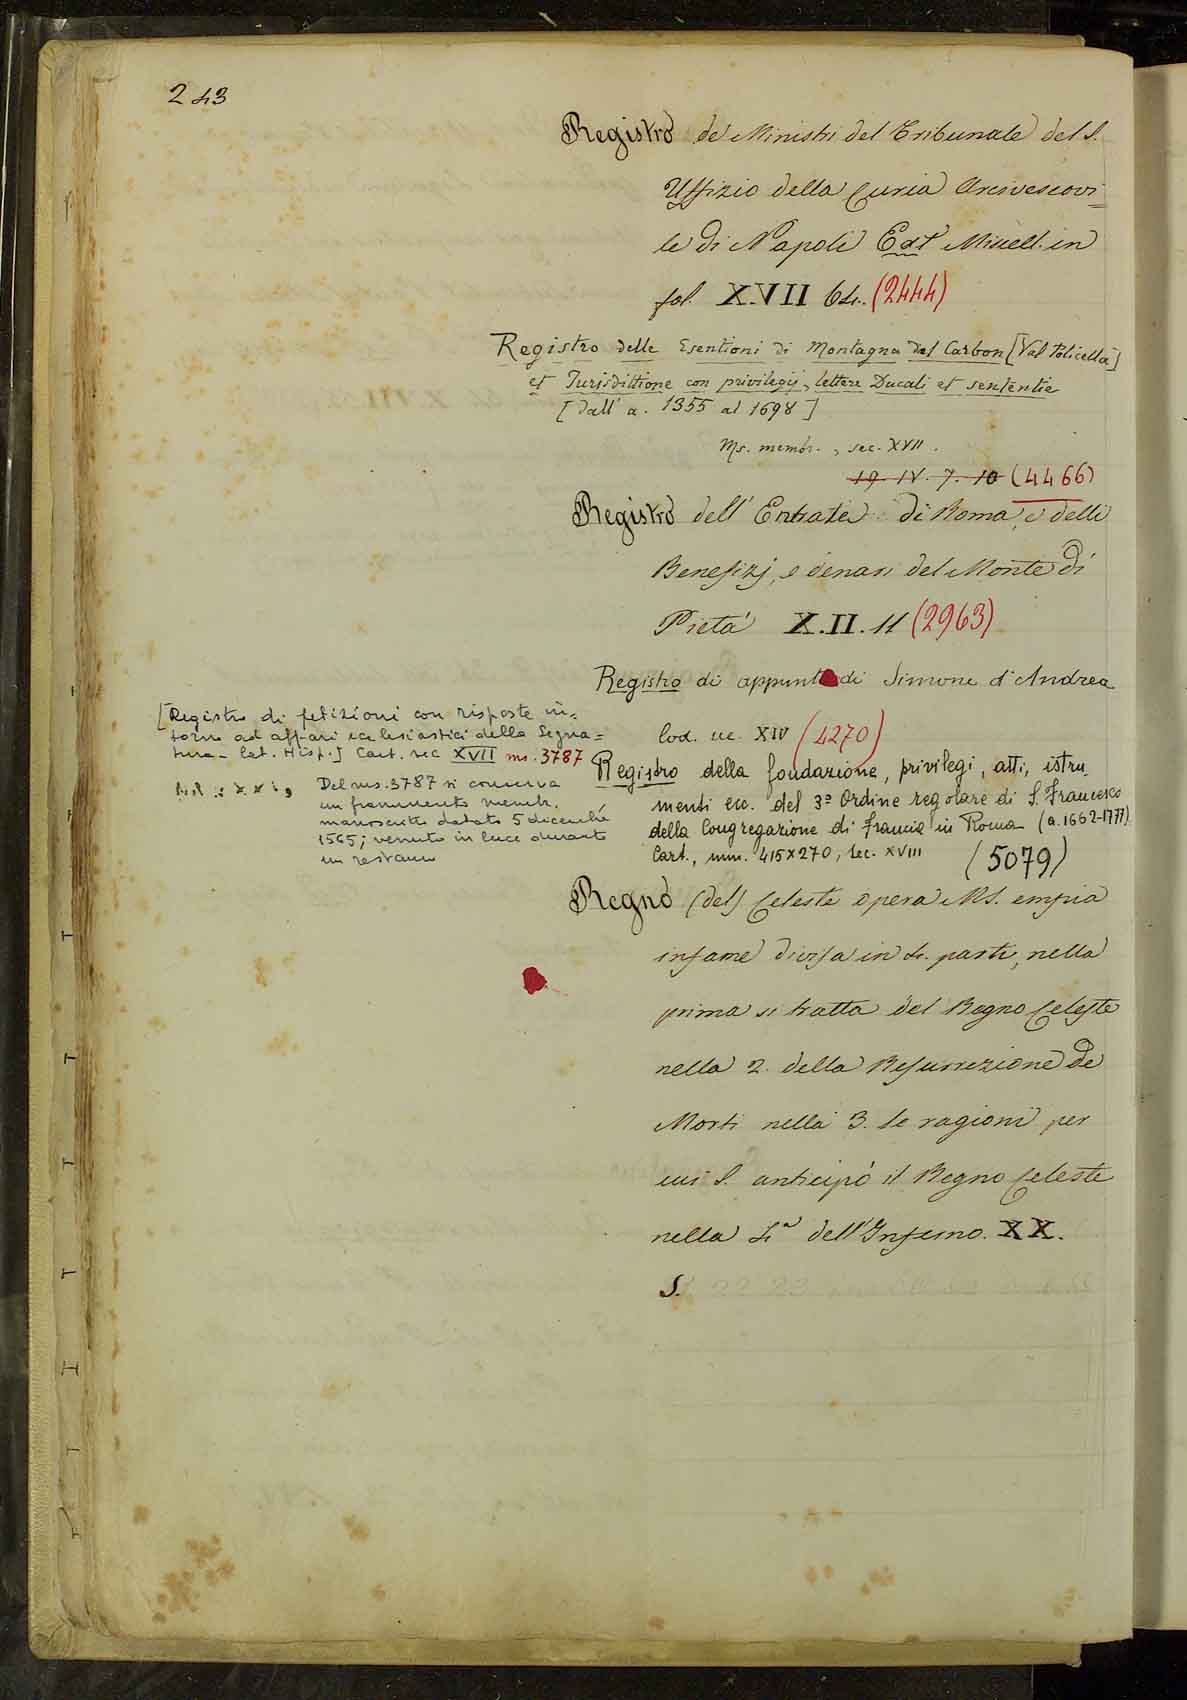 243
Registro de' Ministri del Tribunale del S.
Uffizio della Curia Arcivescovi=
le di Napoli Ext Miscell. in
fol. X.VII 64. (2444)
Registro delle Esentioni di Montagna del Carbon [Val Policella]
et Jurisdittione con privilegij, lettere Ducali et sententie
[dall' a. 1355 al 1698]
Ms. membr., sec. XVII.
19. IV. 7. 10 (4466)
Registro dell' Entrate di Roma, e delli
Benefizj, e denari del Monte di
Pietà X.II.11 (2963)
Registro di appunti di Simone d'Andrea
Cod. sec. XIV (4270)
[Registro di petizioni con risposte in=
torno ad affari ecclesiastici della Segna=
tura - Lat. Hisp.] Cart. sec XVII ms. 3787
Del ms. 3787 si conserva
un frammento membr.
manoscritto datato 5 dicembre
1565; venuto in luce durante
un restauro
Registro della fondazione, privilegi, atti, istru
menti ecc. del 3º Ordine regolare di S. Francesco
della Congregazione di Francia in Roma (a. 1662-1777)
Cart., mm. 415x270, sec. XVIII (5079)
Regno (del) Celeste opera MS. empia
infame divisa in 4. parti, nella
prima si tratta del Regno Celeste
nella 2. della Resurrezione de
Morti nella 3. le ragioni per
cui S. anticipò il Regno Celeste
nella 4ª dell'Inferno. XX.
S.